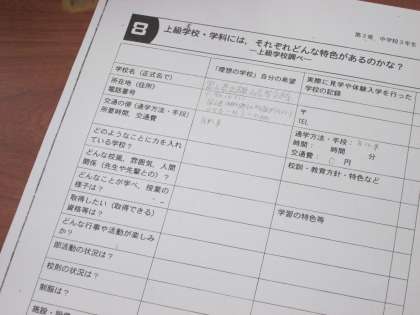 8
上級学校・学科には、それぞれどんな特色があるのかな？
―上級学校調べ―
第3章、中学校3年生
「理想の学校」自分の希望
実際に見学や体験入学を行った
学校の記録
学校名（正式名で）
所在地（住所）
電話番号
〒
TEL
交通の便（通学方法・手段）
所要時間、交通費
通学方法・手段：
時間： 時間 分
交通費： 円
どのようなことに力を入れ
ている学校？
校訓・教育方針・特色など
どんな校風、雰囲気、人間
関係（先生や先輩との）？
どんなことが学べ、授業の
様子は？
取得したい（取得できる）
資格等は？
学習の特色等
どんな行事や活動が楽しみ
か？
部活動の状況は？
校則の状況は？
制服は？